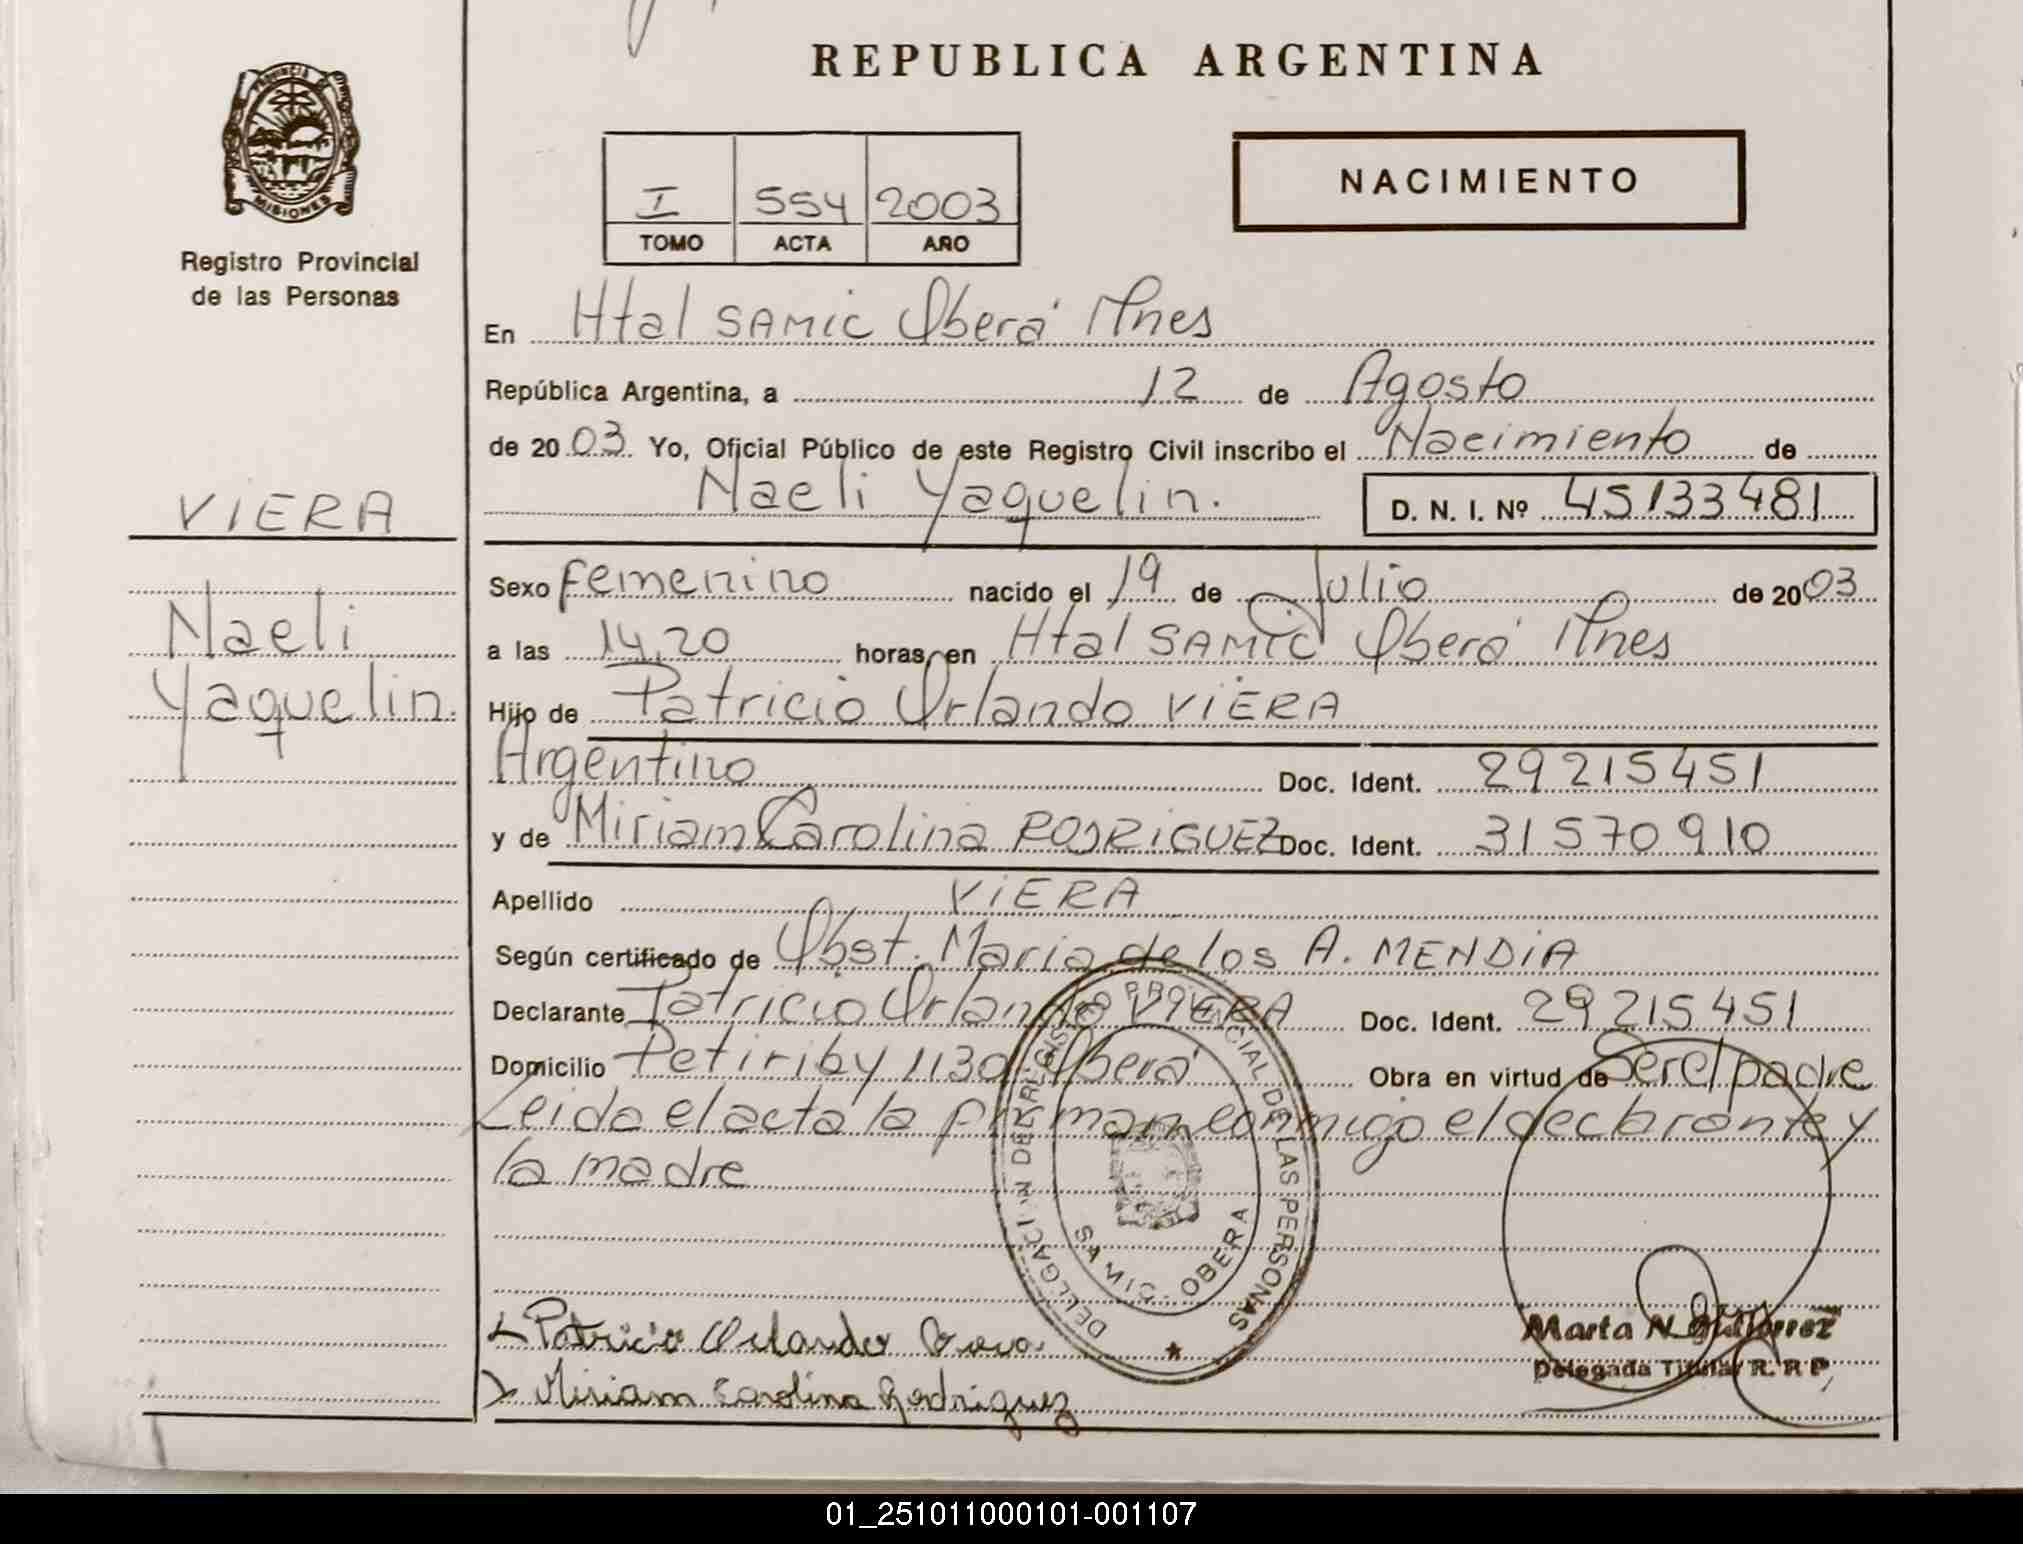 REPUBLICA ARGENTINA
PROVINCIA DE
MISIONES
Registro Provincial
de las Personas
I 554 2003
TOMO ACTA AÑO
NACIMIENTO
En Htal SAMIC Oberá Mnes
República Argentina, a 12 de Agosto
de 2003. Yo, Oficial Público de este Registro Civil inscribo el Nacimiento de
Naeli Yaquelin. D. N. I. Nº 45133481
VIERA
Naeli
Yaquelin.
Sexo femenino nacido el 19 de Julio de 2003
a las 14,20 horas, en Htal SAMIC Oberá Mnes
Hijo de Patricio Orlando VIERA
Argentino Doc. Ident. 29215451
y de Miriam Carolina RODRIGUEZ Doc. Ident. 31570910
Apellido VIERA
Según certificado de Obst. Maria de los A. MENDIA
Declarante Patricio Orlando VIERA Doc. Ident. 29215451
Domicilio Petiriby 1130 Oberá Obra en virtud de Ser el padre
Leida el acta la firman conmigo el declarante y
la madre
DELEGACION DEL REGISTRO PROVINCIAL DE LAS PERSONAS
SAMIC - OBERA
Patricio Orlando
Miriam Carolina Rodriguez
Marta N. Gutierrez
Delegada Titular R. R P,
01_251011000101-001107